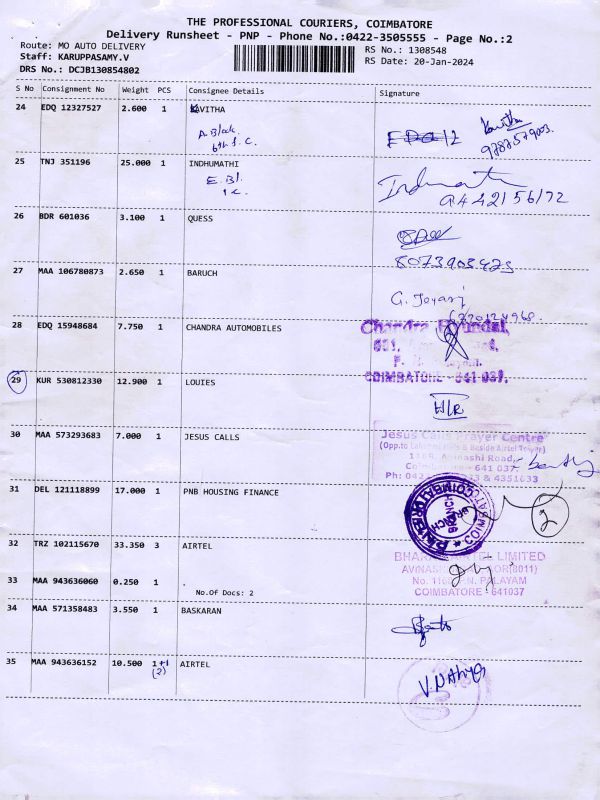 THE PROFESSIONAL COURIERS, COIMBATORE
Delivery Runsheet - PNP - Phone No.:0422-3505555 - Page No.:2
Route: MO AUTO DELIVERY
RS No.: 1308548
Staff: KARUPPASAMY.V
RS Date: 20-Jan-2024
DRS No.: DCJB130854802
S No Consignment No Weight PCS Consignee Details Signature
24 EDQ 12327527 2.600 1 KAVITHA
A Block
Kavitha
25 TNJ 351196 25.000 1 INDHUMATHI
E. Bl.
1 C.
9442156172
26 BDR 601036 3.100 1 QUESS
8073903423
27 MAA 106780873 2.650 1 BARUCH
G. Jeyaraj
28 EDQ 15948684 7.750 1 CHANDRA AUTOMOBILES
Chandra Hyundai,
COIMBATORE - 641 037.
29 KUR 530812330 12.900 1 LOUIES
H/R
30 MAA 573293683 7.000 1 JESUS CALLS
Jesus Calls Prayer Centre
Avinashi Road,
641 037
& 4351633
31 DEL 121118899 17.000 1 PNB HOUSING FINANCE
BRANCH
COIMBATORE
2
32 TRZ 102115670 33.350 3 AIRTEL
LIMITED
33 MAA 943636060 0.250 1
No.Of Docs: 2
PALAYAM
COIMBATORE - 641037
34 MAA 571358483 3.550 1 BASKARAN
35 MAA 943636152 10.500 1+1 AIRTEL
(2)